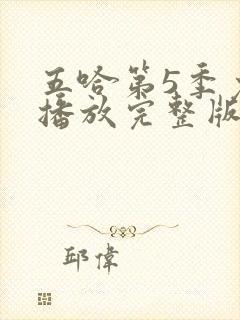 五哈第5季
播放完整版
邱偉